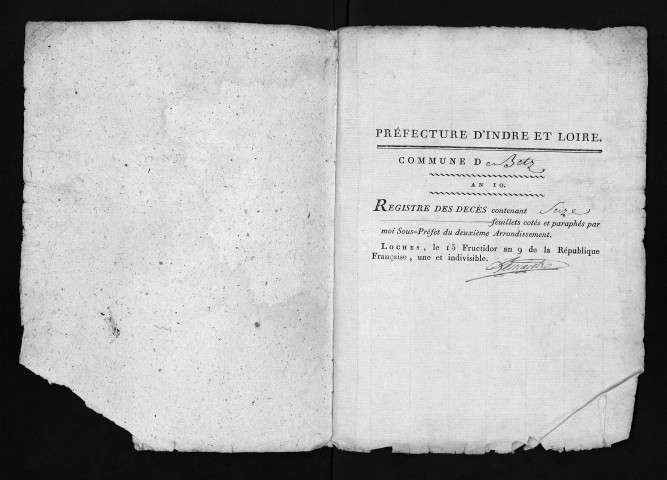 PRÉFECTURE D'INDRE ET LOIRE.
COMMUNE De Betz
AN 10.
REGISTRE DES DECÈS contenant Seize
feuillets cotés et paraphés par
moi Sous-Préfet du deuxième Arrondissement.
LOCHES, le 15 Fructidor an 9 de la République
Française, une et indivisible.